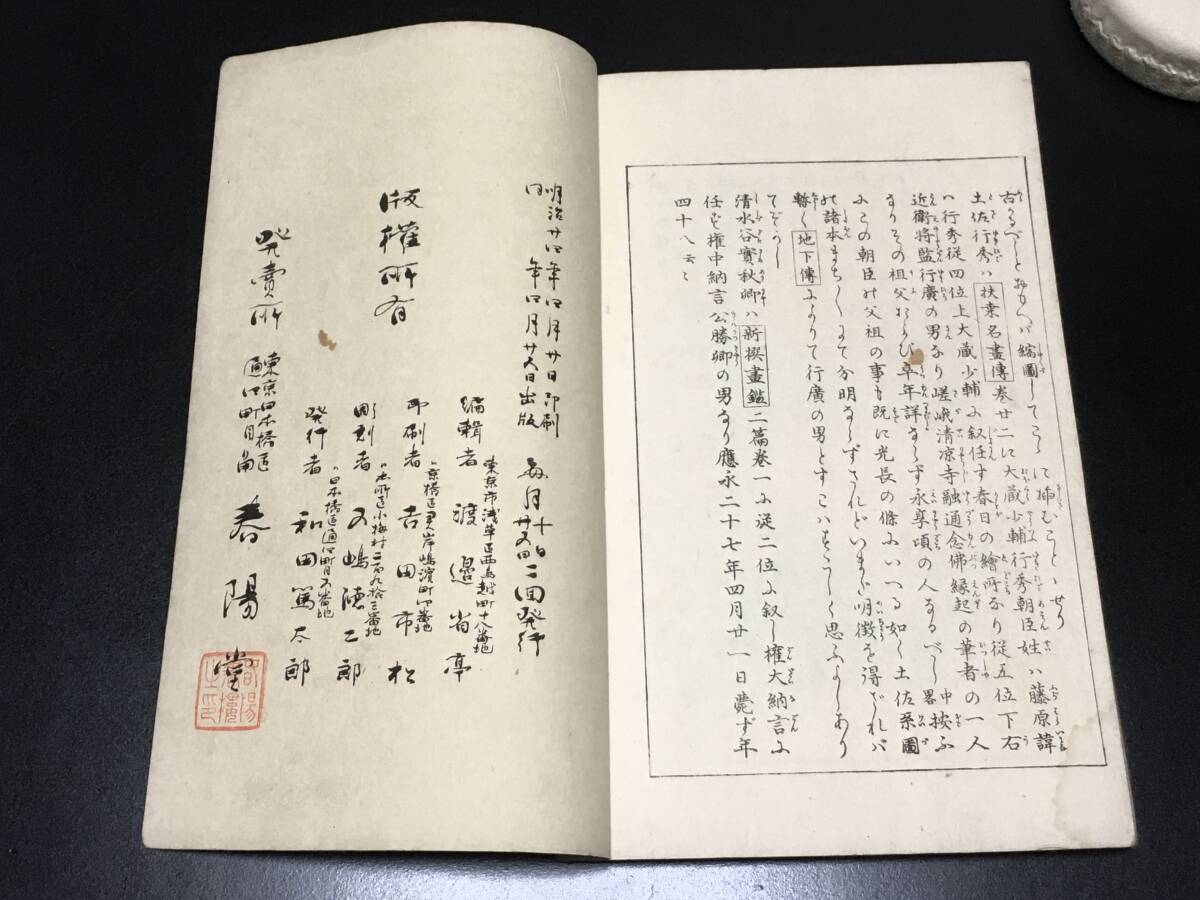 古るべしとおもへバ縮圖してこゝに挿むことゝせり
土佐行秀ハ扶桒名畫傳巻廿二に大蔵少輔行秀朝臣姓ハ藤原諱
ハ行秀従四位上大蔵少輔に叙任す春日の繪所なり従五位下右
近衛将監行廣の男なり嵯峨清凉寺融通念佛縁起の筆者の一人
なりその祖父および卒年詳ならず永享頃の人なるべし 中畧 按ふ
にこの朝臣の父祖の事も既に光長の條にいへる如く土佐系圖
の諸本まち〱にて分明ならずされどいまだ明徴を得ざれバ
暫く地下傳によりて行廣の男とすこハ
てぞかし
清水谷實秋卿ハ新撰畫鑑二篇巻一に従二位に叙し權大納言に
任ず權中納言公勝卿の男なり應永二十七年四月廿一日薨ず年
四十八云々
明治廿四年四月廿日印刷
同年四月廿八日出版
毎月十日廿五日二回発行
版權所有
東京市浅草區西鳥越町十八番地
編輯者 渡邉省亭
印刷者 吉田市松
彫刻者 五嶋徳二郎
〃日本橋區通四町目五番地
発行者 和田篤太郎
東京日本橋區
通四町目角
発賣所 春陽堂